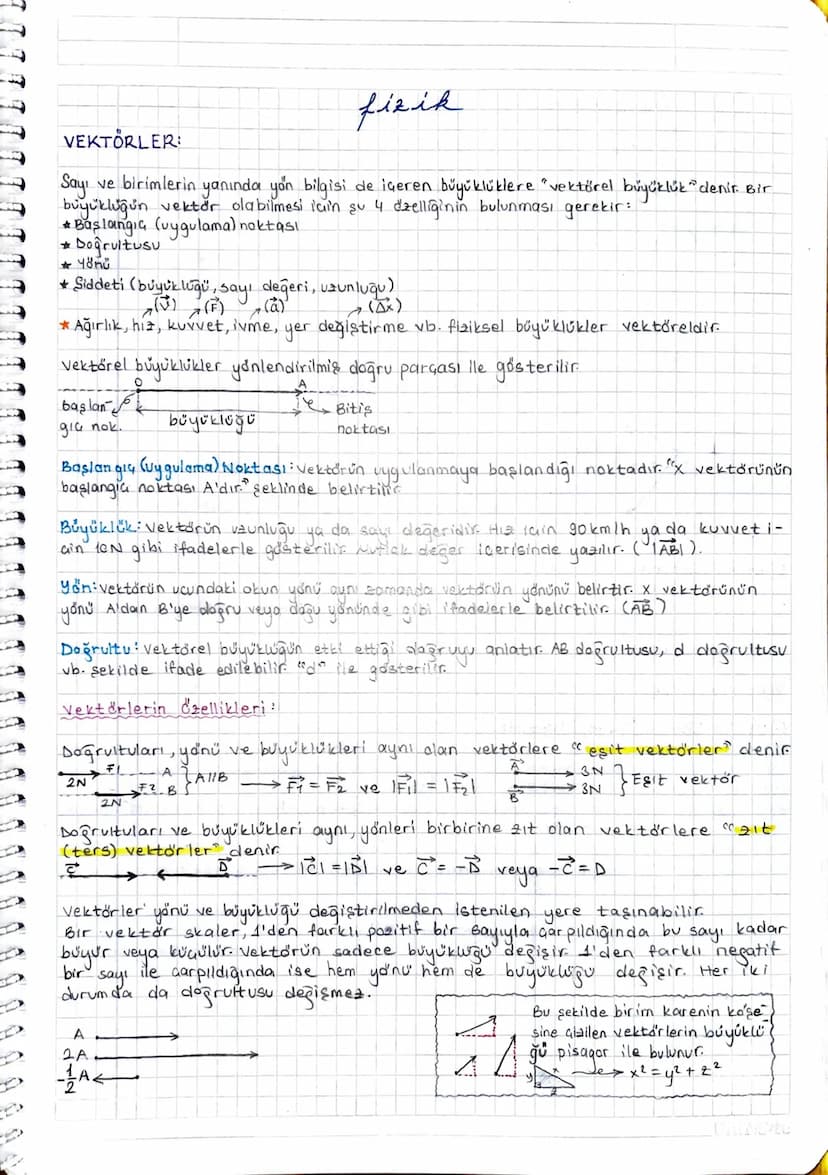 fizik
VEKTÖRLER:
Sayı ve birimlerin yanında yön bilgisi de içeren büyüklüklere "vektörel büyüklük" denir. Bir
büyüklüğün vektör olabilmesi için şu 4 özelliğinin bulunması gerekir:
* Başlangıç (uygulama) noktası
* Doğrultusu
* Yönü
* Şiddeti (büyüklüğü, sayı değeri, uzunluğu)
(v⃗) (F⃗) (a⃗) (Δx⃗)
* Ağırlık, hız, kuvvet, ivme, yer değiştirme vb. fiziksel büyüklükler vektöreldir.
Vektörel büyüklükler yönlendirilmiş doğru parçası ile gösterilir.
O A
başlan- Bitiş
gıç nok. büyüklüğü noktası
Başlangıç (Uygulama) Noktası: Vektörün uygulanmaya başlandığı noktadır. "X vektörünün
başlangıç noktası A'dır." şeklinde belirtilir.
Büyüklük: Vektörün uzunluğu ya da sayı değeridir. Hız için 90 km/h ya da kuvvet i-
çin 10N gibi ifadelerle gösterilir. Mutlak değer içerisinde yazılır. (|AB⃗|).
Yön: Vektörün ucundaki okun yönü aynı zamanda vektörün yönünü belirtir. X vektörünün
yönü A'dan B'ye doğru veya doğu yönünde gibi ifadelerle belirtilir. (AB⃗)
Doğrultu: Vektörel büyüklüğün etki ettiği doğruyu anlatır. AB doğrultusu, d doğrultusu
vb. şekilde ifade edilebilir. "d" ile gösterilir.
Vektörlerin Özellikleri:
Doğrultuları, yönü ve büyüklükleri aynı olan vektörlere "eşit vektörler" denir.
F1 A A⃗ 3N
2N F2 B } A//B → F⃗1 = F⃗2 ve |F⃗1| = |F⃗2| B⃗ 3N } Eşit vektör
2N
Doğrultuları ve büyüklükleri aynı, yönleri birbirine zıt olan vektörlere "zıt
(ters) vektörler" denir.
C⃗ D⃗ → |C⃗| = |D⃗| ve C⃗ = -D⃗ veya -C⃗ = D
Vektörler yönü ve büyüklüğü değiştirilmeden istenilen yere taşınabilir.
Bir vektör skaler, 1'den farklı pozitif bir sayıyla çarpıldığında bu sayı kadar
büyür veya küçülür. Vektörün sadece büyüklüğü değişir. 1'den farklı negatif
bir sayı ile çarpıldığında ise hem yönü hem de büyüklüğü değişir. Her iki
durumda da doğrultusu değişmez.
A
2A
-1/2 A
Bu şekilde birim karenin köşe-
sine çizilen vektörlerin büyüklü
ğü pisagor ile bulunur.
y x z → x² = y² + z²